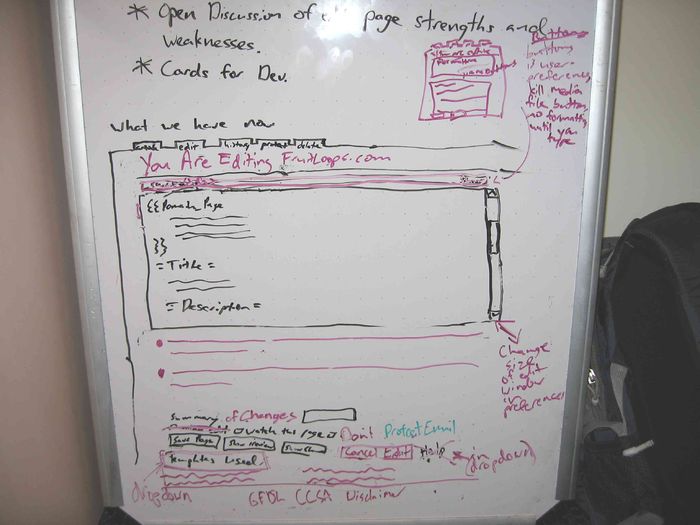 * Open Discussion of page strengths and
weaknesses.
* Cards for Dev.
buttons
buttons
is user
preference,
kill media
file button,
no formatting
until you
type
what we have now
edit history protect delete
You Are Editing FruitLoops.com
{{ Page
}}
= Title =
= Description =
Change
size
of edit
window
in
preferences
Summary of Changes
watch this page Don't Protect Email
Save Page Cancel Edit Help (in
dropdown)
Templates Used
dropdown
GFDL CCSA Disclaimer